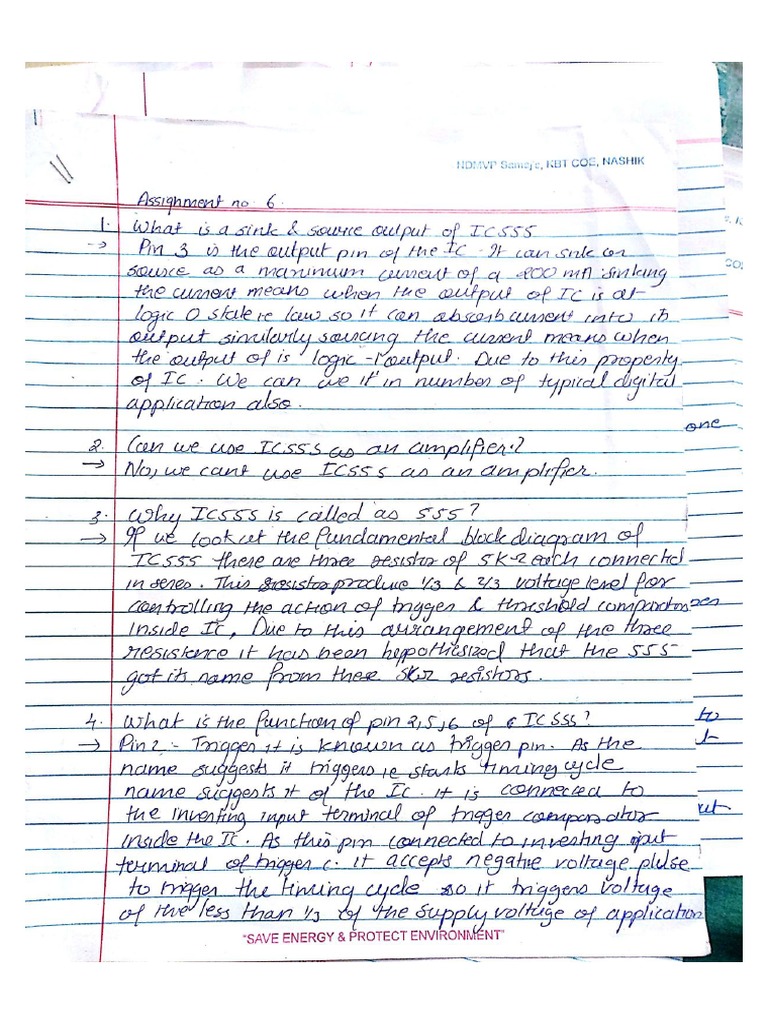 NDMVP Samaj's, KBT COE, NASHIK
Assignment no 6.
1. What is a sink & source output of IC555
→ Pin 3 is the output pin of the IC - It can sink or
source as a maximum current of a 200 mA sinking
the current means when the output of IC is at
logic 0 state ie law so it can absorb current into it
output similarly sourcing the current means when
the output of is logic -1 output. Due to this property
of IC. We can use it in number of typical digital
application also.
2. Can we use IC555 as an amplifier.?
→ No, we cant use IC555 as an amplifier.
3. Why IC555 is called as 555?
→ If we look at the fundamental block diagram of
IC555 there are three resistor of 5K-Ω each connected
in series. This resistor produce 1/3 & 2/3 voltage level for
controlling the action of trigger & threshold comparator
inside IC, Due to this arrangement of the three
resistance it has been hypothesized that the 555
got its name from these 5kΩ resistors.
4. What is the function of pin 2,5,6 of IC555?
→ Pin 2 - Trigger it is known as trigger pin. As the
name suggests it triggers ie starts timing cycle
name suggests it of the Ic. it is connected to
the inverting input terminal of trigger comparator
inside the IC. As this pin connected to inverting input
terminal of trigger c. it accepts negative voltage pulse
to trigger the timing cycle so it triggers voltage
of the less than 1/3 of the supply voltage of application
"SAVE ENERGY & PROTECT ENVIRONMENT"
one
to